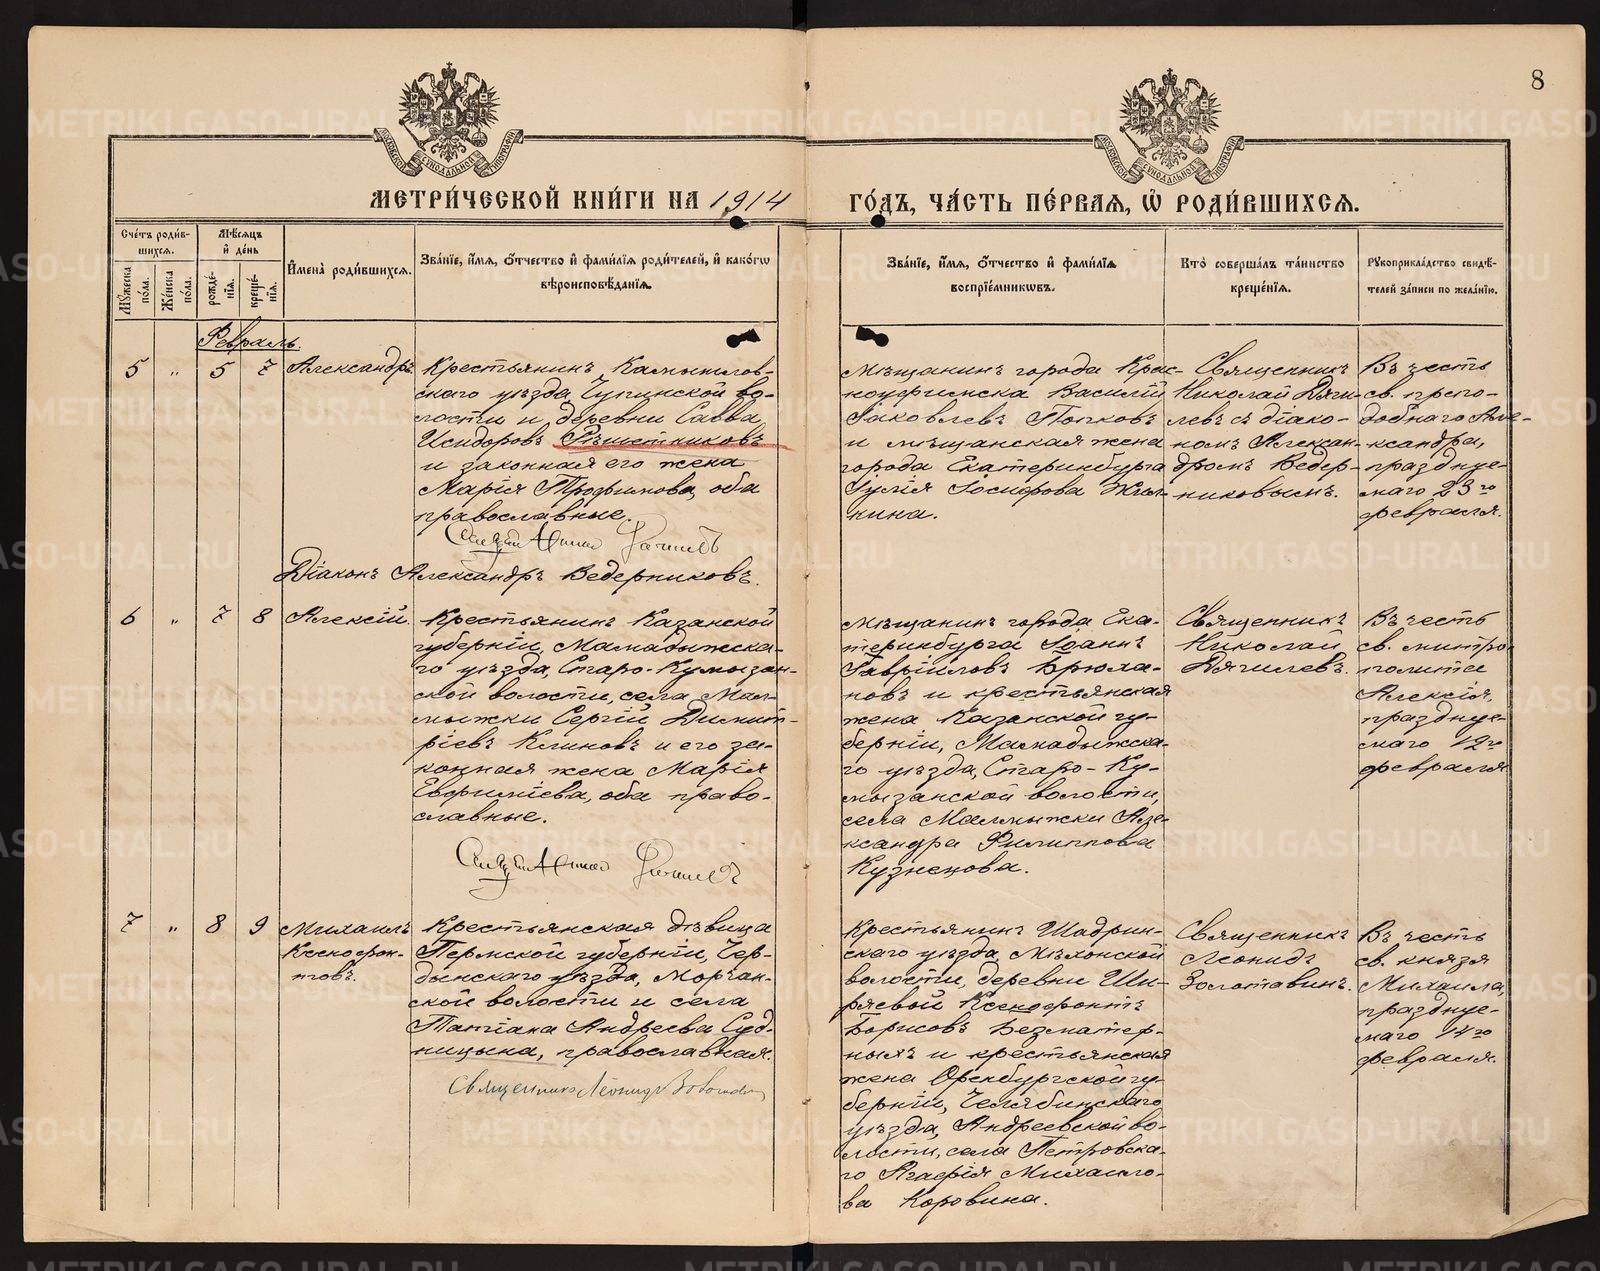 8
МОСКОВСКОЙ СѴНОДАЛЬНОЙ ТИПОГРАФІИ
МОСКОВСКОЙ СѴНОДАЛЬНОЙ ТИПОГРАФІИ
МЕТРИ́ЧЕСКОЙ КНИ́ГИ НА 1914 ГО́ДЪ, ЧА́СТЬ ПЕ́РВАѦ, Ѡ҆ РОДИ́ВШИХСѦ.
Сче́тъ роди́в-
шихсѧ.
Мꙋ́жеска по́ла.
Же́нска по́ла.
Мѣ́сѧцъ
и҆ де́нь
рожде́-
нїѧ.
креще́-
нїѧ.
И҆мена̀ роди́вшихсѧ.
Зва́нїе, и҆́мѧ, ѻ҆́тчество и҆ фами́лїѧ роди́телей, и҆ како́гѡ
вѣроисповѣ́данїѧ.
Зва́нїе, и҆́мѧ, ѻ҆́тчество и҆ фами́лїѧ
воспрїе́мникѡвъ.
Кто̀ соверша́лъ та́инство
креще́нїѧ.
Рꙋкоприкла́дство свидѣ́-
телей за́писи по жела́нїю.
Февраль.
5 „ 5 7
Александръ
Крестьянинъ Камышлов-
скаго уѣзда, Чупинской во-
лости и деревни Савва
Исидоровъ Рѣшетниковъ
и законная его жена
Марія Трофимова, оба
православные.
Діаконъ Александръ Ведерниковъ.
Мѣщанинъ города Крас-
ноуфимска Василій
Іаковлевъ Попковъ
и мѣщанская жена
города Екатеринбурга
Іулія Іосифова Жил-
кина.
Священникъ
Николай Дяги-
левъ съ діако-
номъ Алексан-
дромъ Ведер-
никовымъ.
Въ честь
св. препо-
добнаго Але-
ксандра,
празднуе-
маго 23го
февраля.
6 „ 7 8
Алексій.
Крестьянинъ Казанской
губерніи, Мамадыжска-
го уѣзда, Старо-Кумызан-
ской волости, села Мал-
мыжки Сергій Димит-
ріевъ Климовъ и его за-
конная жена Марія
Евфиміева, оба право-
славные.
Мѣщанинъ города Ека-
теринбурга Іоаннъ
Гавріиловъ Брюха-
новъ и крестьянская
жена Казанской гу-
берніи, Мамадыжска-
го уѣзда, Старо-Ку-
мызанской волости,
села Малмыжки Але-
ксандра Филиппова
Кузнецова.
Священникъ
Николай
Дягилевъ.
Въ честь
св. митро-
полита
Алексія,
празднуе-
маго 12го
февраля.
7 „ 8 9
Михаилъ
Ксенофон-
товъ.
Крестьянская дѣвица
Пермской губерніи, Чер-
дынскаго уѣзда, Морчан-
ской волости и села
Татіана Андреева Суд-
ницына, православная.
Священникъ Леонидъ Золотавинъ
Крестьянинъ Шадрин-
скаго уѣзда, Мѣхонской
волости, деревни Ши-
ряевой Ксенофонтъ
Борисовъ Безматер-
ныхъ и крестьянская
жена Оренбургской гу-
берніи, Челябинскаго
уѣзда, Андреевской во-
лости, села Петровска-
го Агафія Михаило-
ва Коровина.
Священникъ
Леонидъ
Золотавинъ.
Въ честь
св. князя
Михаила,
празднуе-
маго 14го
февраля.
METRIKI.GASO-URAL.RU